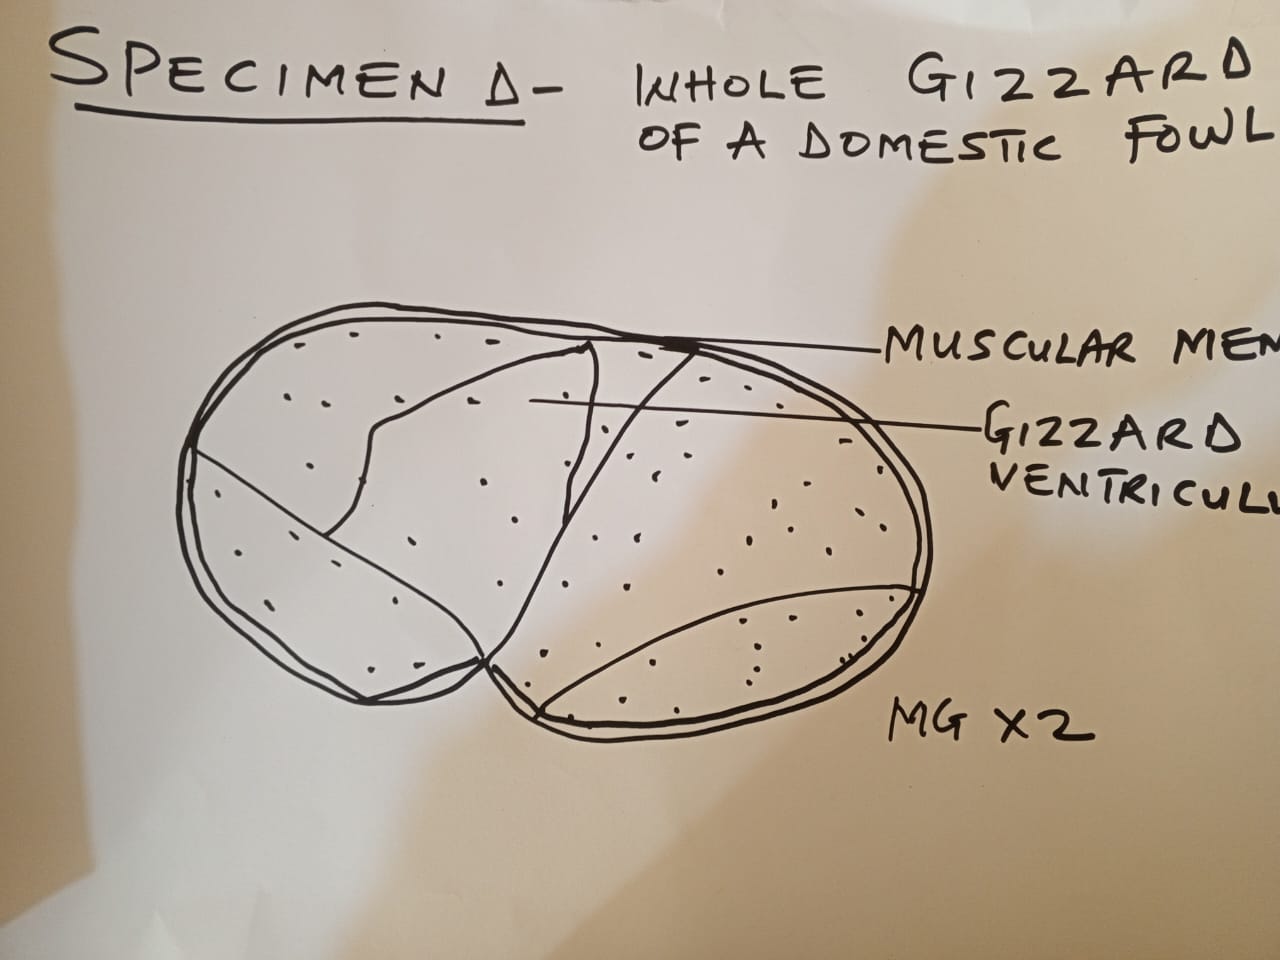 SPECIMEN D - WHOLE GIZZARD
OF A DOMESTIC FOWL
MUSCULAR MEM
GIZZARD
VENTRICUL
MG X2